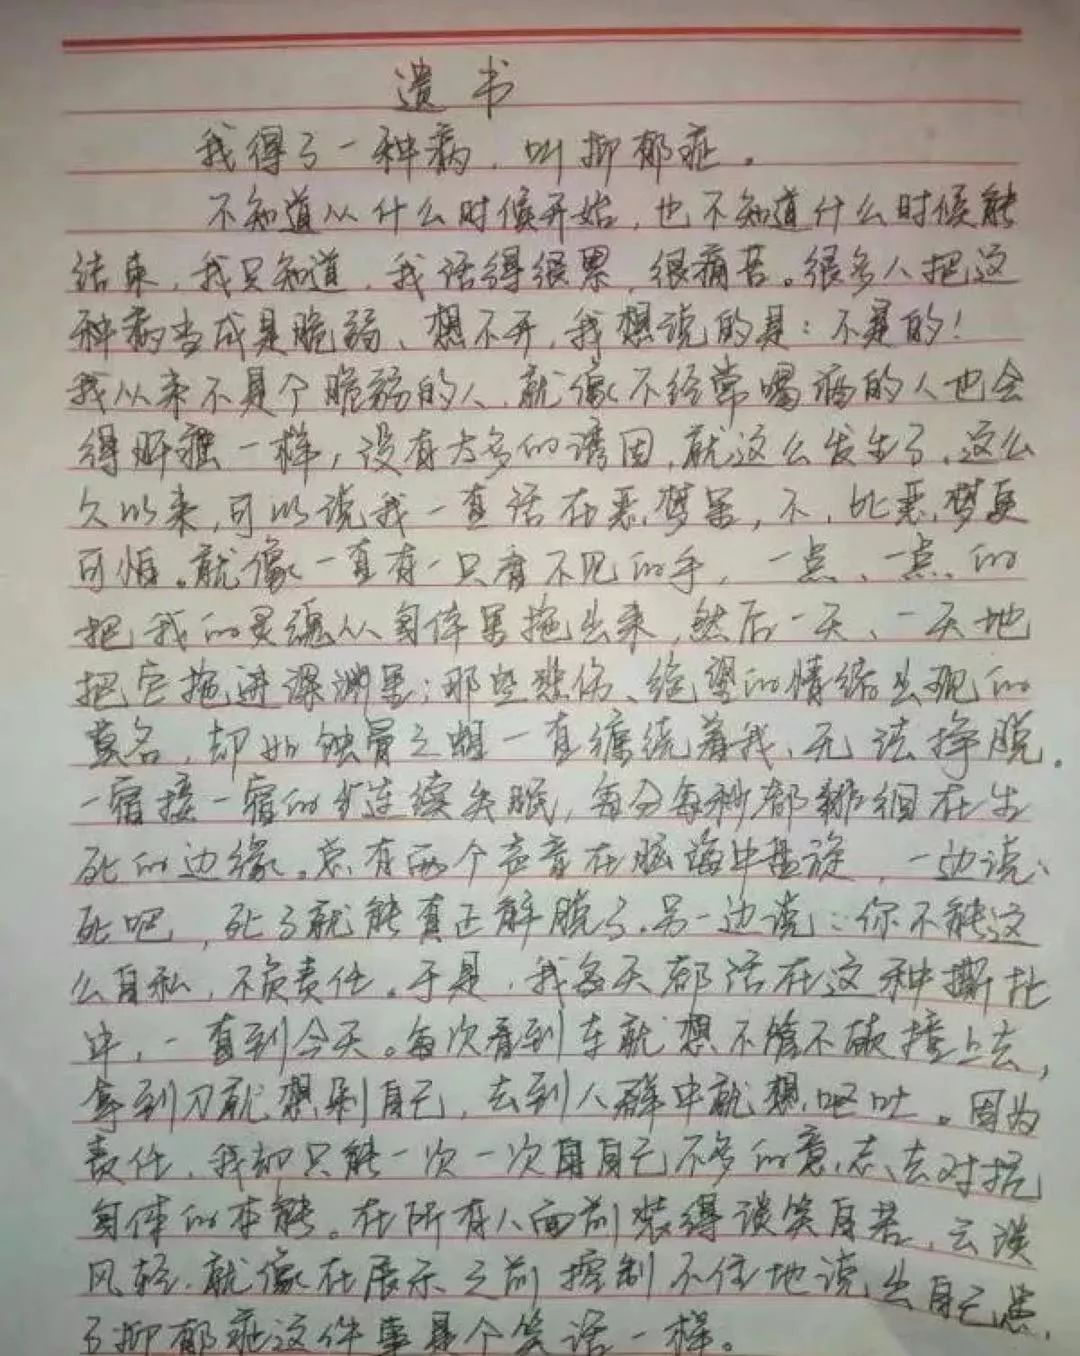 遗书
我得了一种病，叫抑郁症。
不知道从什么时候开始，也不知道什么时候能
结束，我只知道，我活得很累，很痛苦。很多人把这
种病当成是脆弱、想不开，我想说的是：不是的！
我从来不是个脆弱的人，就像不经常喝酒的人也会
得肝癌一样，没有太多的诱因，就这么发生了。这么
久以来，可以说我一直活在恶梦里，不，比恶梦更
可怕。就像一直有一只看不见的手，一点、一点的
把我的灵魂从身体里拖出来，然后一天、一天地
把它拖进深渊里；那些悲伤、绝望的情绪出现的
莫名，却如蚀骨之蛆一直缠绕着我、无法挣脱。
一宿接一宿的连续失眠，每分每秒都徘徊在生
死的边缘。总有两个声音在脑海中盘旋，一边说：
死吧，死了就能真正解脱了。另一边说：你不能这
么自私，不负责任。于是，我每天都活在这种撕扯
中，一直到今天。每次看到车就想不管不顾撞上去，
拿到刀就想剁自己，去到人群中就想呕吐。因为
责任，我却只能一次一次用自己不多的意志去对抗
身体的本能。在所有人面前装得谈笑自若，云淡
风轻，就像在展示之前控制不住地说出自己患
了抑郁症这件事是个笑话一样。